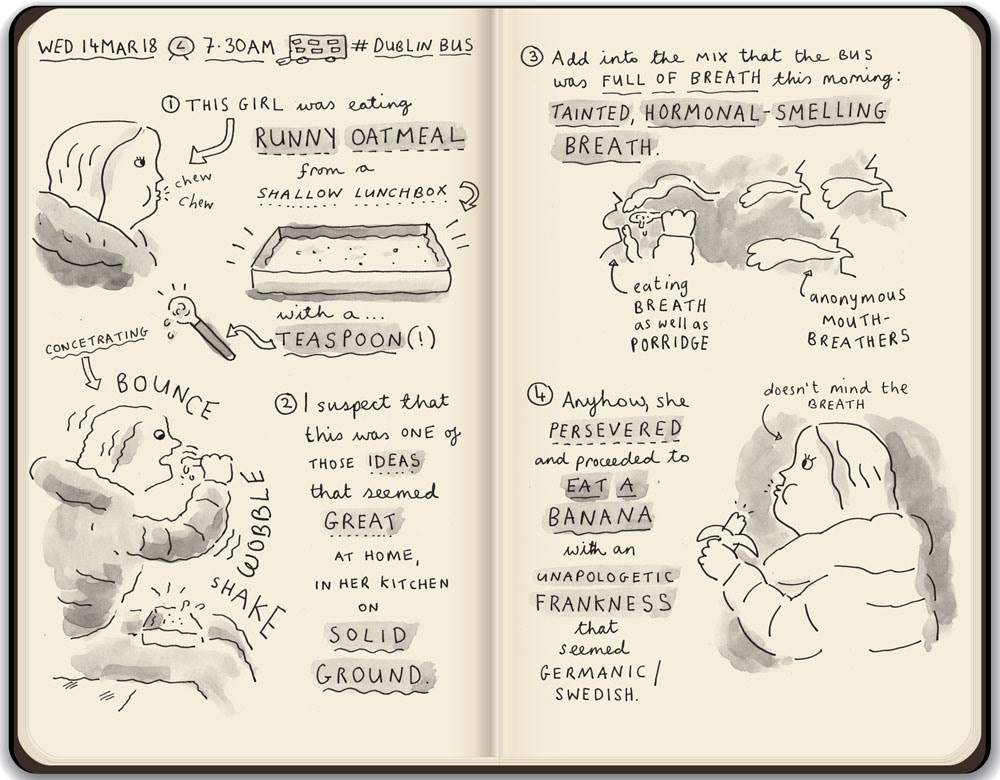 WED 14MAR18 7·30AM # DUBLIN BUS
① THIS GIRL was eating
RUNNY OATMEAL
from a
SHALLOW LUNCHBOX
chew
chew
with a...
TEASPOON(!)
CONCETRATING
BOUNCE
WOBBLE
SHAKE
② I suspect that
this was ONE of
THOSE IDEAS
that seemed
GREAT
AT HOME,
IN HER KITCHEN
ON
SOLID
GROUND.
③ Add into the MIX that the BUS
was FULL OF BREATH this morning:
TAINTED, HORMONAL-SMELLING
BREATH.
eating
BREATH
as well as
PORRIDGE
anonymous
MOUTH-
BREATHERS
④ Anyhow, she
PERSEVERED
and proceeded to
EAT A
BANANA
with an
UNAPOLOGETIC
FRANKNESS
that
seemed
GERMANIC/
SWEDISH.
doesn't mind the
BREATH